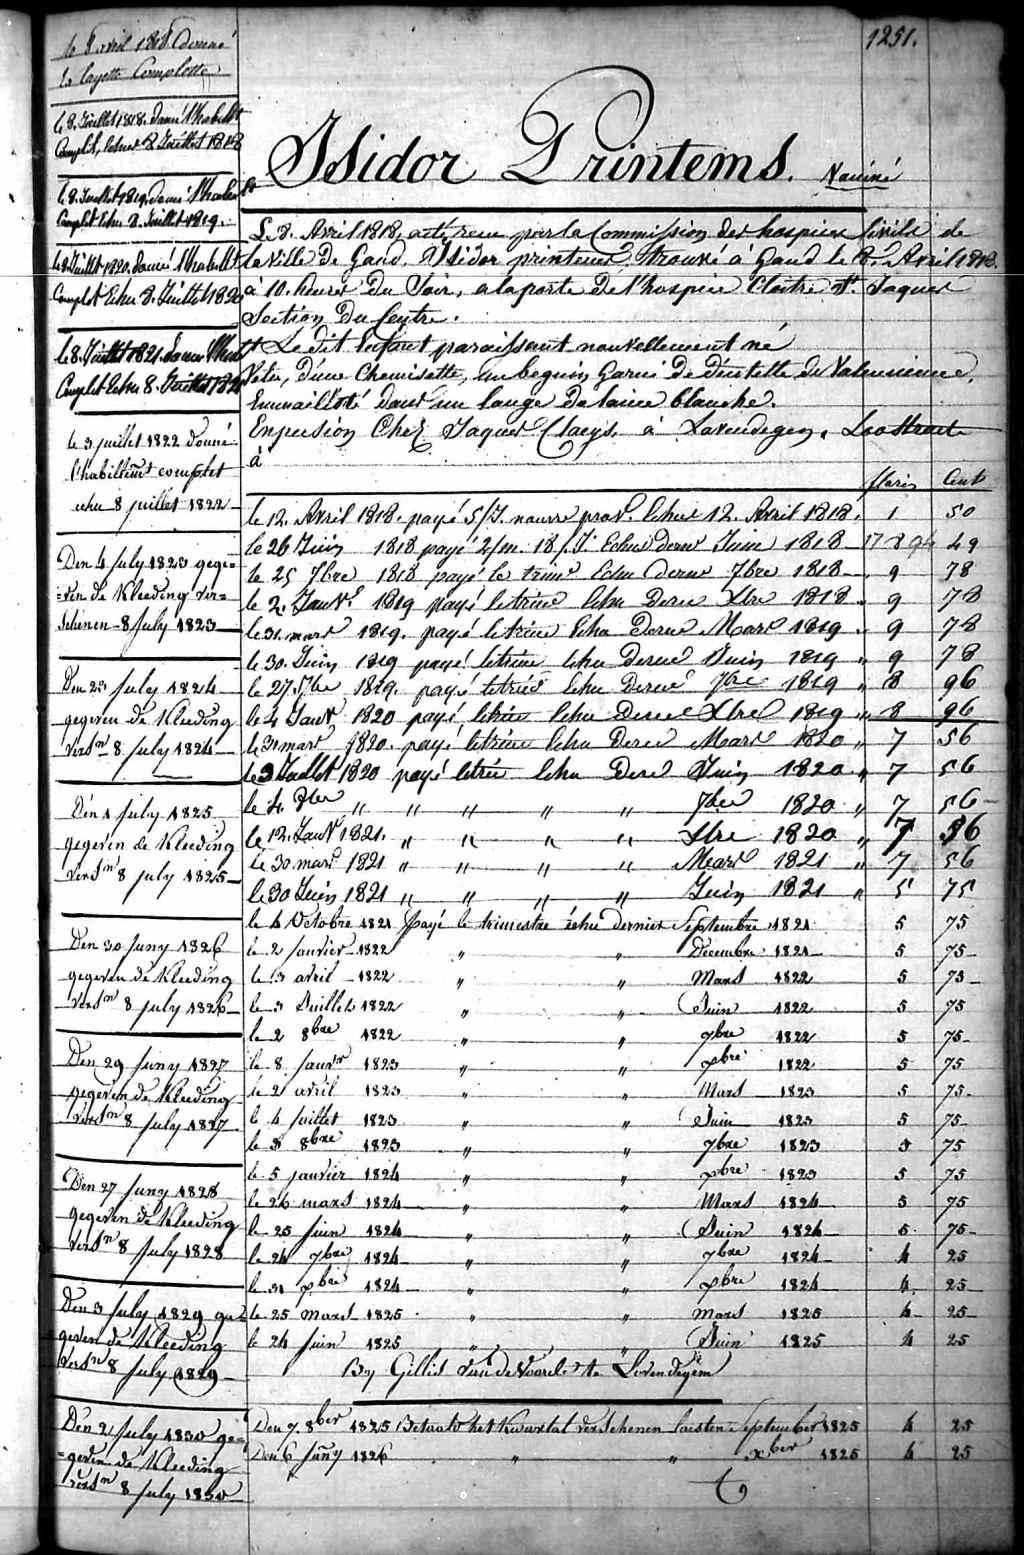 1251.
le 8 avril 1818 donné
la layette Complette
le 8. Juillet 1818. donné l'habillt
Complet, Echu 8 Juillet 1818
le 8. Juillet 1819. donné l'habillt
Complet Echu 8. Juillet 1819.
le 8. Juillet 1820. donné l'habillt
Complet Echu 8. Juillet 1820
le 8. Juillet 1821. donné
Complet Echu 8. Juillet 1821
le 3 juillet 1822 donné
l'habillemt complet
echu 8 juillet 1822
Den 4 july 1823 gege-
=ven de Kleeding ver=
schenen 8 july 1823
Den 23 july 1824
gegeven de Kleeding
versn 8 july 1824
Den 1 july 1825
gegeven de Kleeding
versn 8 july 1825
Den 30 juny 1826
gegeven de Kleeding
versn 8 july 1826
Den 29 juny 1827
gegeven de Kleeding
versn 8 july 1827
Den 27 juny 1828
gegeven de Kleeding
versn 8 july 1828
Den 3 july 1829 ge=
geven de Kleeding
versn 8 july 1829
Den 2 july 1830 ge=
=geven de Kleeding
versn 8 july 1830
Isidor Printems.
Le 8. Avril 1818, a été recu par la Commission des hospices Civils de
la Ville de Gand, Isidor printems, trouvé à Gand le 8. Avril 1818.
à 10. heures du Soir, a la porte de l'hospice Cloitre St. Jaques
Section du Centre.
Le dit Enfant paraissant nouvellement né
Vetu, d'une Chemisette, un beguin garni de dentelle de Valencienne,
Emmailloté dans un lange de laine blanche.
En pension Chez Jaques Claeys, à Lovendegem, Loostraete
à
floris Cent
le 12. Avril 1818. payé 5/J. nourre prov. Echu 12. Avril 1818. 1 50
le 26 Juin 1818 payé 2/m. 18/J. Echu dernr Juin 1818 17 49
le 25 7bre 1818 payé le trime Echu dernr 7bre 1818 9 78
le 2. Janvr 1819 payé le trime Echu Dernr Xbre 1818 9 78
le 31. mars 1819. payé le trime Echu Dernr Mars 1819 " 9 78
le 30. Juin 1819 payé le trime Echu Dernr Juin 1819 " 9 78
le 27. 7bre 1819. payé le trime Echu Dernr 7bre 1819 " 8 96
le 4 Janvr 1820 payé le trime Echu Dernr Xbre 1819 " 8 96
le 31 mars 1820. payé le trime Echu Dernr Mars 1820 " 7 56
le 3 Juillet 1820 payé le trie Echu Dernr Juin 1820 " 7 56
le 4 " " " " " 7bre 1820 " 7 56
le 12. Janvr 1821. " " " " Xbre 1820 " 7 56
le 30 mars 1821 " " " " Mars 1821 " 7 56
le 30 Juin 1821 " " " " Juin 1821 " 5 75
le 4 Octobre 1821 Payé le trimestre échu dernier Septembre 1821 5 75
le 2 janvier 1822 " " Decembre 1821 5 75
le 3 avril 1822 " " Mars 1822 5 75
le 3 Juillet 1822 " " Juin 1822 5 75
le 2 8bre 1822 " " 7bre 1822 5 75
le 8 janvr 1823 " " xbre 1822 5 75
le 2 avril 1823 " " Mars 1823 5 75
le 4 juillet 1823 " " Juin 1823 5 75
le 3 8bre 1823 " " 7bre 1823 5 75
le 5 janvier 1824 " " xbre 1823 5 75
le 26 mars 1824 " " Mars 1824 5 75
le 25 juin 1824 " " Juin 1824 5 75
le 24 7bre 1824 " " 7bre 1824 4 25
le 31 xbre 1824 " " xbre 1824 4 25
le 25 mars 1825 " " mars 1825 4 25
le 24 juin 1825 " " Juin 1825 4 25
By Gillis van de Voorde te Lovendegem
Den 7. 8ber 1825 Betaald het Kwartal verschenen laesten September 1825 4 25
Den 6 Juny 1826 " " xber 1825 4 25